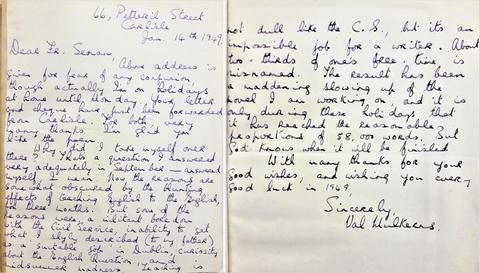 66, Petteril Street
Carlisle
Jan. 14th 1949.
Dear Fr. Senan,
Above address is
given for fear of any confusion,
though actually I'm on holidays
at home until Monday. Your letter
and they've have just been forwarded
from Carlisle. For both very
many thanks. I'm glad you
like the poem.
Why did I take myself over
there? That's a question I answered
very adequately in September — answered
myself, I mean. Now the reasons are
somewhat obscured by the blunting
effects of teaching English to the English,
for three months. But some of the
reasons were, a militant boredom
with the Civil Service, inability to get
what I slyly described (to my father)
as a suitable job in Dublin, curiosity
about the English Question, and
midsummer madness. Teaching is
not dull like the C.S., but its an
impossible job for a writer. About
two-thirds of one's free time is
misnamed. The result has been
a maddening slowing up of the
novel I am working on, and it is
only during these holidays that
it has reached the reasonable
proportions of 58,000 words. But
God knows when it will be finished
With many thanks for your
good wishes, and wishing you every
good luck in 1949.
Sincerely,
Val Mulkerns.